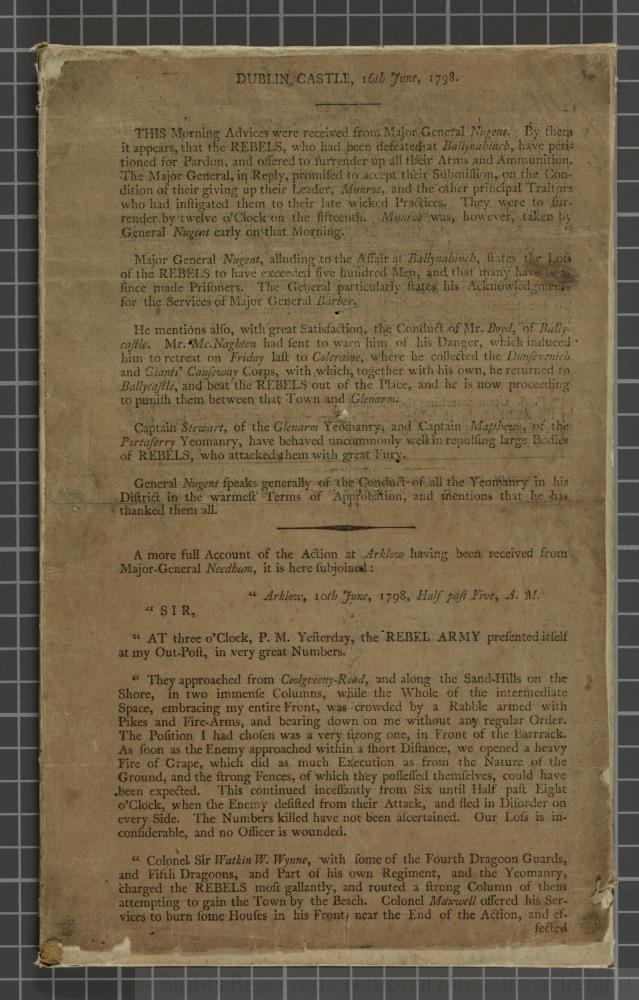 DUBLIN CASTLE, 16th June, 1798.
THIS Morning Advices were received from Major General Nugent. By them
it appears, that the REBELS, who had been defeated at Ballynahinch, have peti-
tioned for Pardon, and offered to surrender up all their Arms and Ammunition.
The Major General, in Reply, promised to accept their Submission, on the Con-
dition of their giving up their Leader, Munroe, and the other principal Traitors
who had instigated them to their late wicked Practices. They were to sur-
render by twelve o'Clock on the fifteenth. Munroe was, however, taken by
General Nugent early on that Morning.
Major General Nugent, alluding to the Affair at Ballynahinch, states the Loss
of the REBELS to have exceeded five hundred Men, and that many have been
since made Prisoners. The General particularly states his Acknowledgments
for the Services of Major General Barber.
He mentions also, with great Satisfaction, the Conduct of Mr. Boyd, of Bally-
castle. Mr. Mc.Naghten had sent to warn him of his Danger, which induced
him to retreat on Friday last to Coleraine, where he collected the Dunsevenich
and Giants' Causeway Corps, with which, together with his own, he returned to
Ballycastle, and beat the REBELS out of the Place, and he is now proceeding
to punish them between that Town and Glenarm.
Captain Stewart, of the Glenarm Yeomanry, and Captain Matthews, of the
Portaferry Yeomanry, have behaved uncommonly well in repulsing large Bodies
of REBELS, who attacked them with great Fury.
General Nugent speaks generally of the Conduct of all the Yeomanry in his
District in the warmest Terms of Approbation, and mentions that he has
thanked them all.
A more full Account of the Action at Arklow having been received from
Major-General Needham, it is here subjoined:
" Arklow, 10th June, 1798, Half past Five, A. M.
" SIR,
" AT three o'Clock, P. M. Yesterday, the REBEL ARMY presented itself
at my Out-Post, in very great Numbers.
" They approached from Coolgreeny-Road, and along the Sand-Hills on the
Shore, in two immense Columns, while the Whole of the intermediate
Space, embracing my entire Front, was crowded by a Rabble armed with
Pikes and Fire-Arms, and bearing down on me without any regular Order.
The Position I had chosen was a very strong one, in Front of the Barrrack.
As soon as the Enemy approached within a short Distance, we opened a heavy
Fire of Grape, which did as much Execution as from the Nature of the
Ground, and the strong Fences, of which they possessed themselves, could have
been expected. This continued incessantly from Six until Half past Eight
o'Clock, when the Enemy desisted from their Attack, and fled in Disorder on
every Side. The Numbers killed have not been ascertained. Our Loss is in-
considerable, and no Officer is wounded.
" Colonel Sir Watkin W. Wynne, with some of the Fourth Dragoon Guards,
and Fifth Dragoons, and Part of his own Regiment, and the Yeomanry,
charged the REBELS most gallantly, and routed a strong Column of them
attempting to gain the Town by the Beach. Colonel Maxwell offered his Ser-
vices to burn some Houses in his Front, near the End of the Action, and ef-
fected
Rights Reserved - National Museum of Ireland